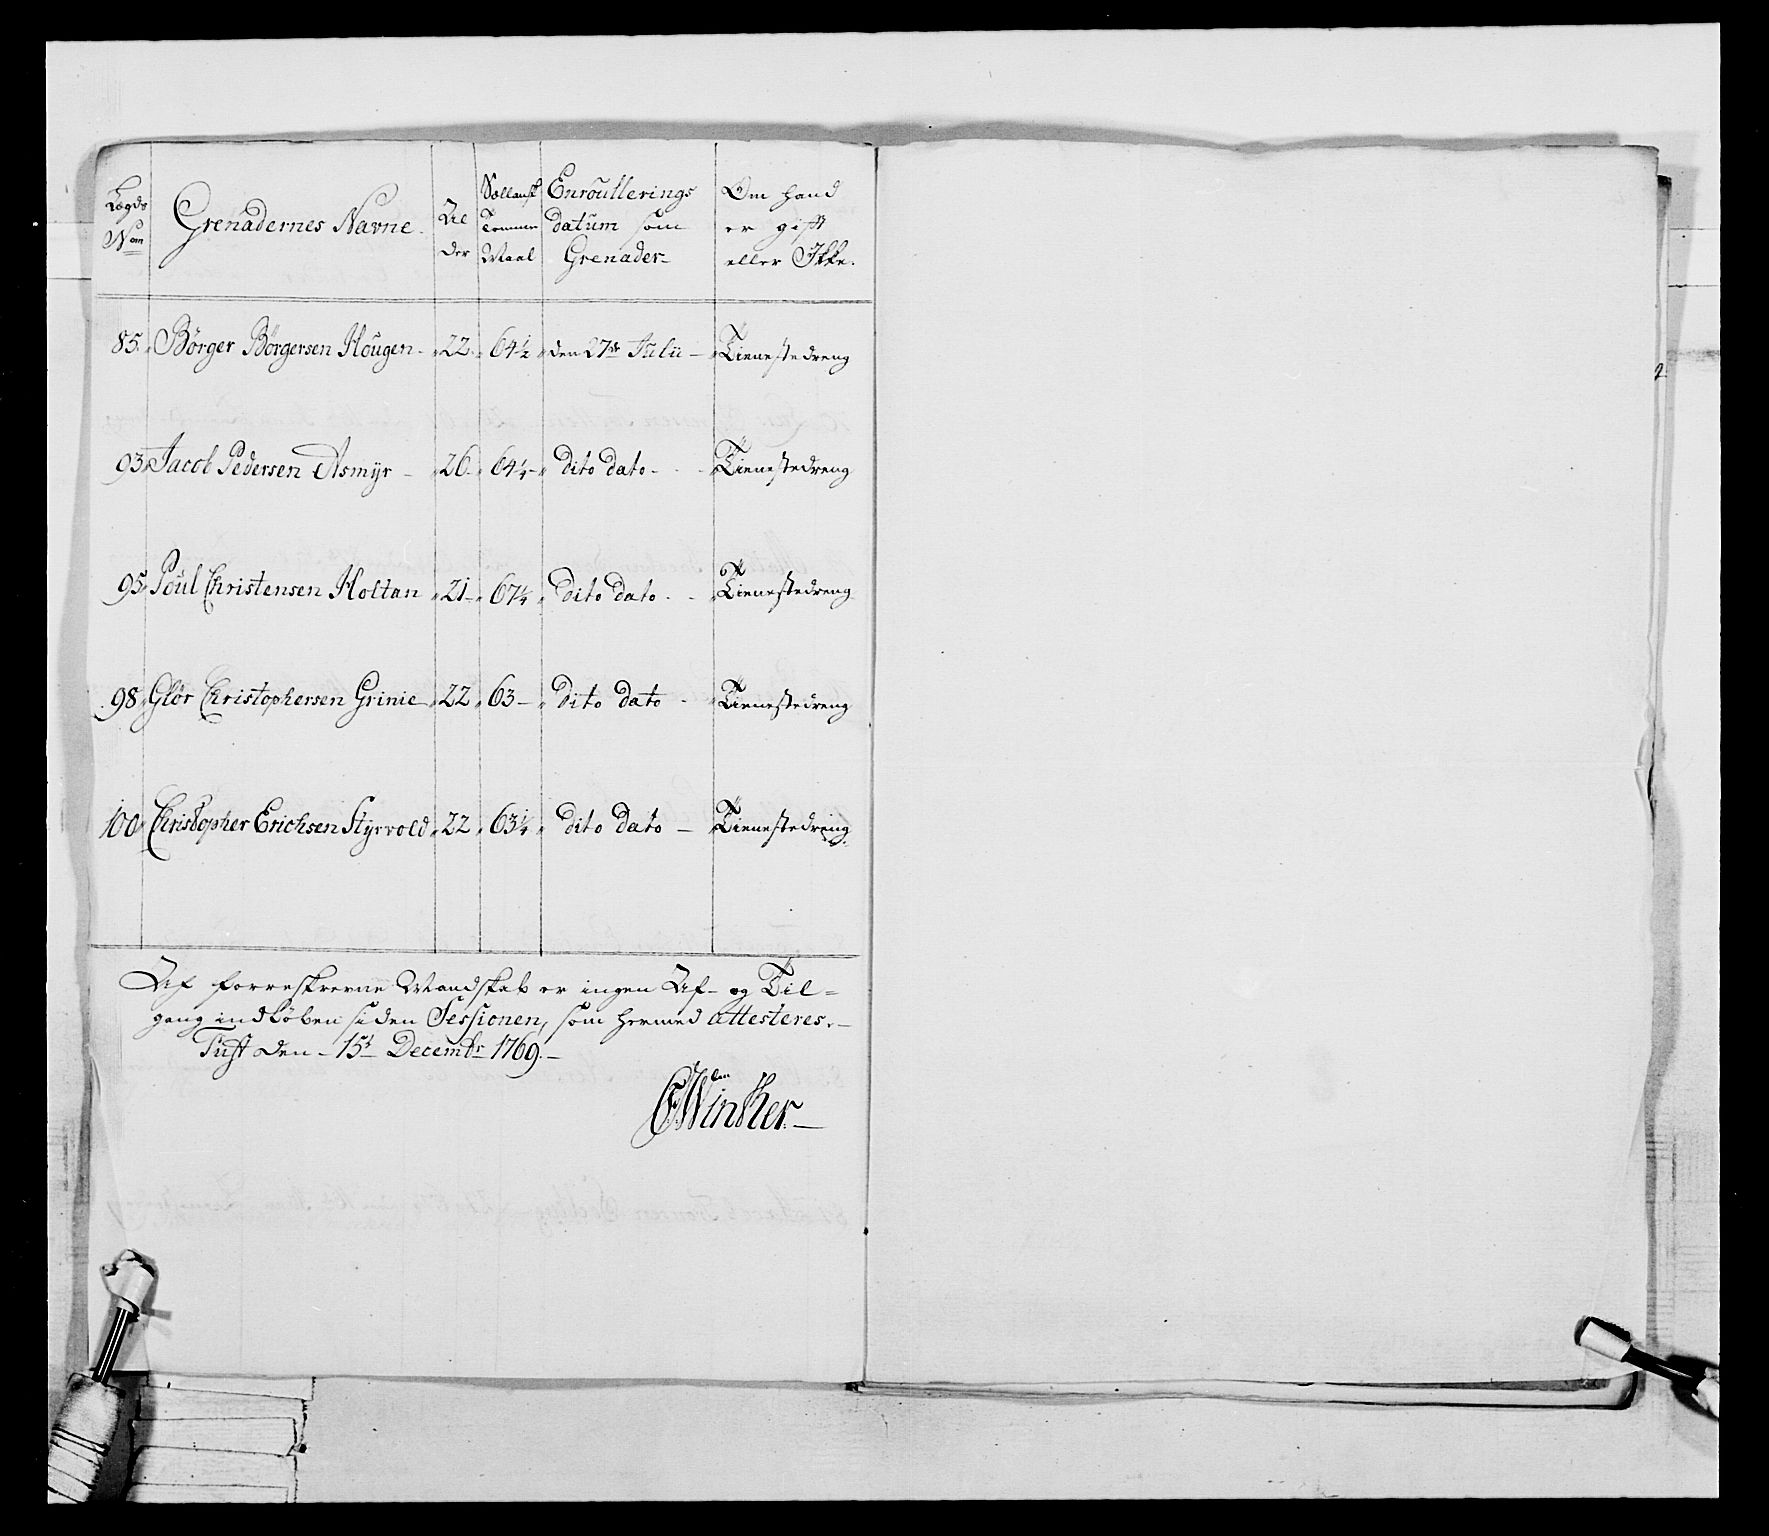 Lægds Nom | Grenadernes Navne. | Al der | Sællansk Tomme Maal | Enroullerings datum som Grenader | Om hand er gift eller Ikke.
85. Börger Börgersen Hougen - 22. 64½ den 27de Julii - Tienestedreng
93 Jacob Pedersen Asmyr - 26. 64¼ - Dito Dato - Tienestedreng
95 Poul Christensen Holtan 21 - 67¼ Dito Dato - Tienestedreng
98 Glör Christophersen Grinie 22 63 - Dito Dato - Tienestedreng
100 Christopher Erichsen Styrvold 22 63¼ Dito Dato - Tienestedreng.
Af forreskrevne Mandskab er ingen Af- og Til-
gang indløben siden Sessionen, som hermed attesteres. -
Tuft den - 15t Decembr 1769. -
Winther -